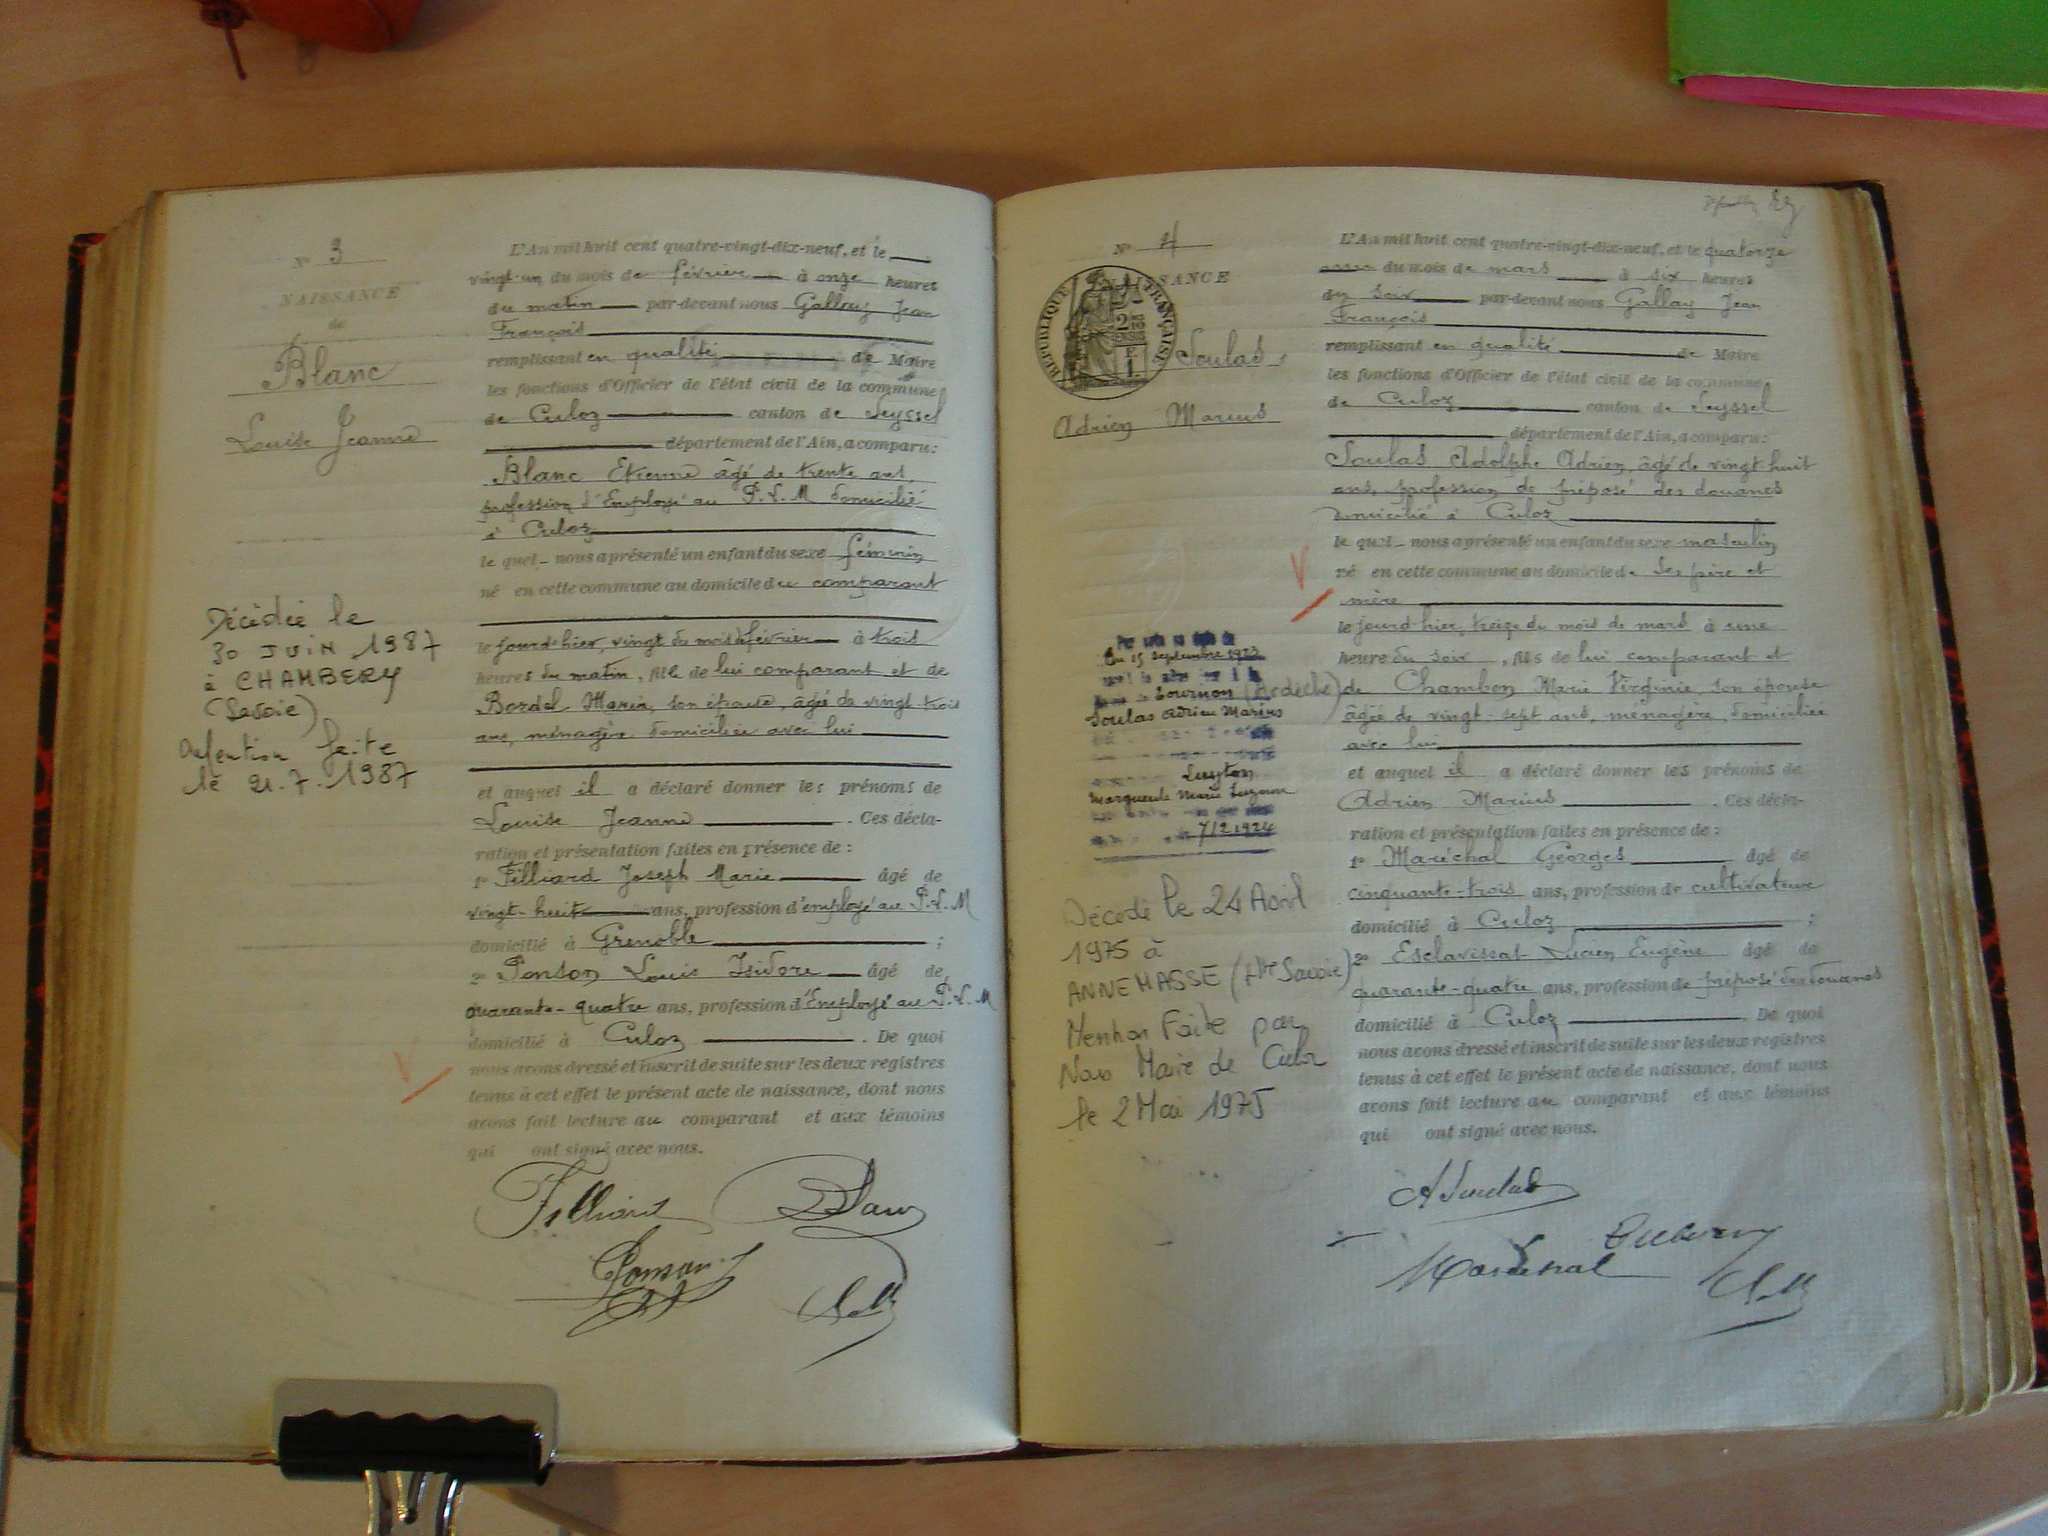 Nº 3
NAISSANCE
de
Blanc
Louise Jeanne
Décédée le
30 JUIN 1987
à CHAMBERY
(Savoie)
mention faite
le 21.7.1987
L'An mil huit cent quatre-vingt-dix-neuf, et le
vingt-un du mois de février à onze heures
du matin par-devant nous Gallay Jean
François
remplissant en qualité de Maire
les fonctions d'Officier de l'état civil de la commune
de Culoz canton de Seyssel
département de l'Ain, a comparu:
Blanc Etienne âgé de trente ans,
profession d'Employé au P.L.M domicilié
à Culoz
lequel nous a présenté un enfant du sexe féminin
né en cette commune au domicile du comparant
le jourd'hier, vingt du mois de février à trois
heures du matin, fille de lui comparant et de
Bordel Marie, son épouse, âgée de vingt-trois
ans, ménagère domiciliée avec lui
et auquel il a déclaré donner les prénoms de
Louise Jeanne . Ces décla-
ration et présentation faites en présence de :
1º Filliard Joseph Marie âgé de
vingt-huit ans, profession d'employé au P.L.M
domicilié à Grenoble ;
2º Ponson Louis Isidore âgé de
quarante-quatre ans, profession d'Employé au P.L.M
domicilié à Culoz . De quoi
nous avons dressé et inscrit de suite sur les deux registres
tenus à cet effet le présent acte de naissance, dont nous
avons fait lecture au comparant et aux témoins
qui ont signé avec nous.
Filliard Blanc
Ponson
Nº 4
NAISSANCE
RÉPUBLIQUE FRANÇAISE
Soulas
Adrien Marius
Du 15 septembre 1923
Tournon (Ardèche)
Soulas Adrien Marius
Luyton
Marguerite Marie
7/2 1924
Décédé le 24 Avril
1975 à
ANNEMASSE (Hte Savoie)
Mention Faite par
Nous Maire de Culoz
le 2 Mai 1975
L'An mil huit cent quatre-vingt-dix-neuf, et le quatorze
du mois de mars à six heures
du soir par-devant nous Gallay Jean
François
remplissant en qualité de Maire
les fonctions d'Officier de l'état civil de la commune
de Culoz canton de Seyssel
département de l'Ain, a comparu:
Soulas Adolphe Adrien, âgé de vingt huit
ans, profession de préposé des douanes
domicilié à Culoz
lequel nous a présenté un enfant du sexe masculin
né en cette commune au domicile de ses père et
mère
le jourd'hier, treize du mois de mars à une
heure du soir, fils de lui comparant et
de Chambon Marie Virginie, son épouse
âgée de vingt-sept ans, ménagère, domiciliée
avec lui
et auquel il a déclaré donner les prénoms de
Adrien Marius . Ces décla-
ration et présentation faites en présence de :
1º Maréchal Georges âgé de
cinquante-trois ans, profession de cultivateur
domicilié à Culoz ;
2º Esclavissat Lucien Eugène âgé de
quarante-quatre ans, profession de préposé des douanes
domicilié à Culoz . De quoi
nous avons dressé et inscrit de suite sur les deux registres
tenus à cet effet le présent acte de naissance, dont nous
avons fait lecture au comparant et aux témoins
qui ont signé avec nous.
A Soulas
Maréchal